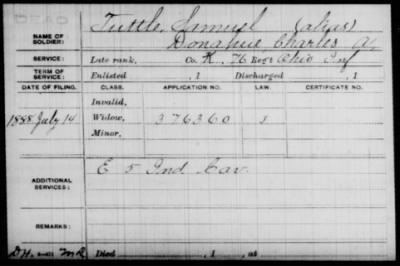 DEAD
NAME OF SOLDIER: Tuttle, Samuel (alias)
Donahue, Charles A.
SERVICE: Late rank, Co. K, 76 Reg't Ohio Inf
TERM OF SERVICE: Enlisted , 1 Discharged , 1
DATE OF FILING. CLASS. APPLICATION NO. LAW. CERTIFICATE NO.
Invalid,
1888 July 14 Widow, 376360
Minor,
ADDITIONAL SERVICES: E 5 Ind. Cav.
REMARKS:
Died , 1 , at